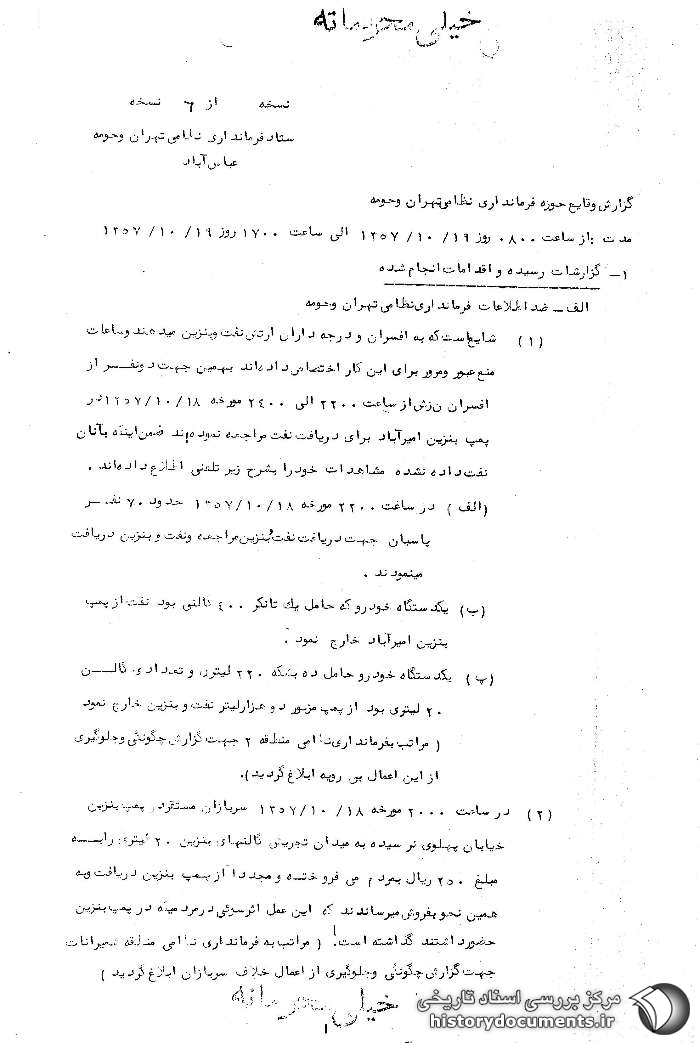 خیلی محرمانه
نسخه از ٦ نسخه
ستاد فرمانداری نظامی تهران وحومه
عباس آباد
گزارش وقایع حوزه فرمانداری نظامی تهران وحومه
مدت : از ساعت ٠٨٠٠ روز ١٩/ ١٠/ ١٣٥٧ الی ساعت ١٧٠٠ روز ١٩/ ١٠/ ١٣٥٧
١- گزارشات رسیده و اقدامات انجام شده
الف - ضد اطلاعات فرمانداری نظامی تهران وحومه
(١) شایع است که به افسران و درجه داران ارتش نفت وبنزین میدهند وساعات
منع عبور ومرور برای این کار اختصاص داده اند بهمین جهت دونفر از
افسران از ساعت ٢٢٠٠ الی ٢٤٠٠ مورخه ١٨/ ١٠/ ١٣٥٧ در
پمپ بنزین امیرآباد برای دریافت نفت مراجعه نموده اند ضمن اینکه بآنان
نفت داده نشده مشاهدات خود را بشرح زیر تلفنی اطلاع داده اند .
(الف) در ساعت ٢٢٠٠ مورخه ١٨/ ١٠/ ١٣٥٧ حدود ٧٠ نفر
پاسبان جهت دریافت نفت وبنزین مراجعه ونفت و بنزین دریافت
مینمودند .
(ب) یکدستگاه خودرو که حامل یك تانکر ٤٠٠ گالنی بود نفت از پمپ
بنزین امیرآباد خارج نمود .
(پ) یکدستگاه خودرو حامل ده بشکه ٢٢٠ لیتری و تعدادی گالن
٢٠ لیتری بود از پمپ مزبور دو هزار لیتر نفت و بنزین خارج نمود
( مراتب بفرمانداری نظامی منطقه ٢ جهت گزارش چگونگی وجلوگیری
از این اعمال بی رویه ابلاغ گردید ).
(٢) در ساعت ٢٠٠٠ مورخه ١٨/ ١٠/ ١٣٥٧ سربازان مستقر در پمپ بنزین
خیابان پهلوی نرسیده به میدان تجریش گالنهای بنزین ٢٠ لیتری را به
مبلغ ٢٥٠ ریال بمردم می فروختند و مجددا از پمپ بنزین دریافت وبه
همین نحو بفروش میرساندند که این عمل اثر سوئی در مردمیکه در پمپ بنزین
حضور داشتند گذاشته است! ( مراتب به فرمانداری نظامی منطقه شمیرانات
جهت گزارش چگونگی وجلوگیری از اعمال خلاف سربازان ابلاغ گردید )
خیلی محرمانه
١
مرکز بررسی اسناد تاریخی
historydocuments.ir